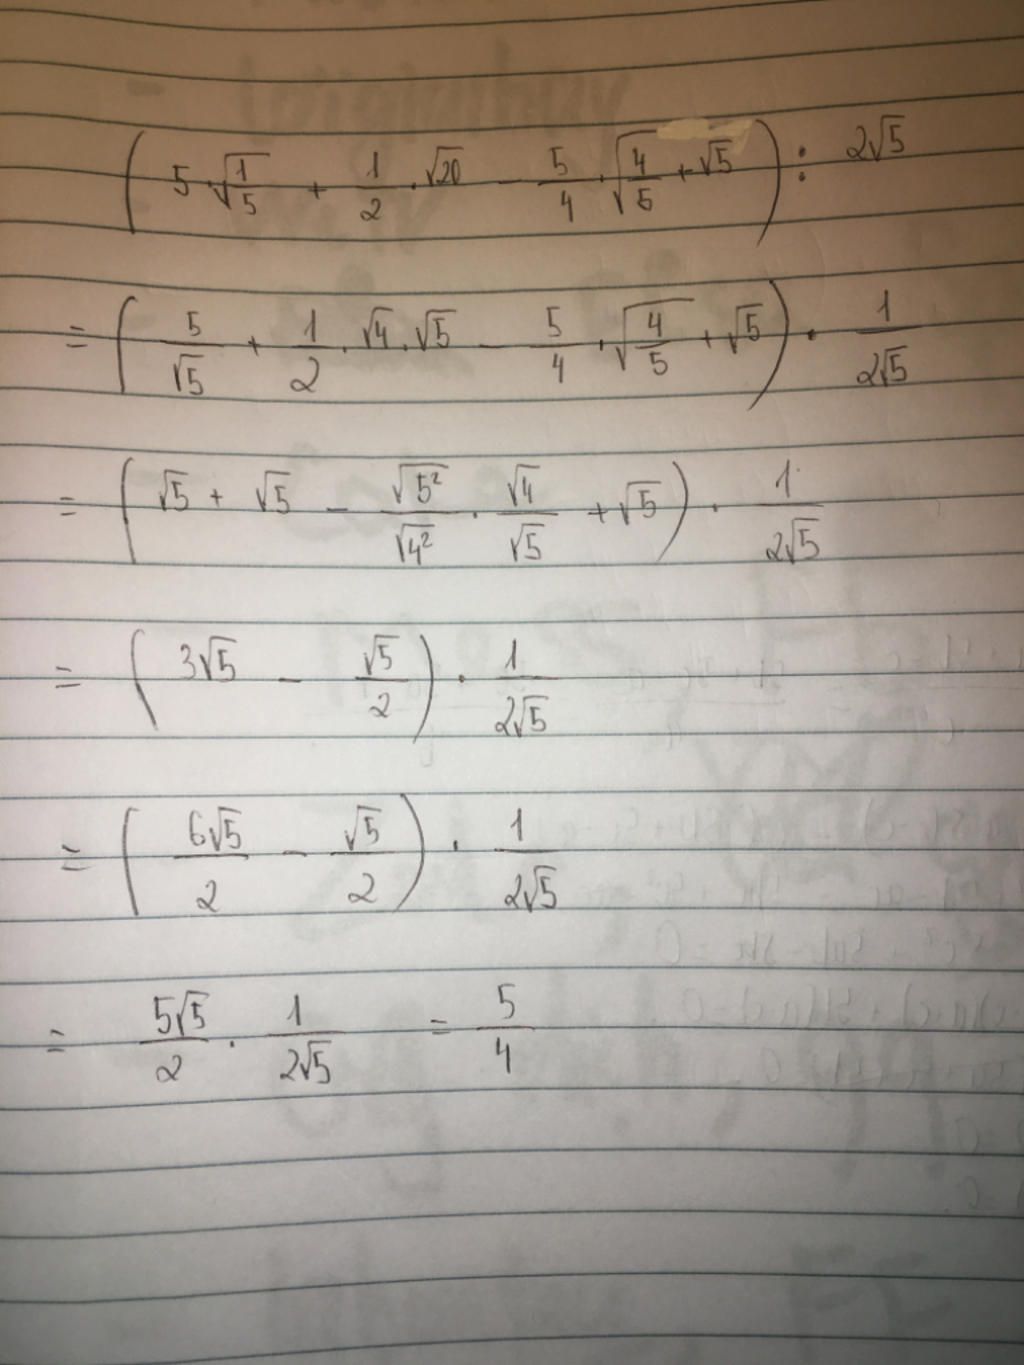 ( 5 · √(1/5) + 1/2 · √20 - 5/4 · √(4/5) + √5 ) : 2√5
= ( 5/√5 + 1/2 · √4 · √5 - 5/4 · √(4/5) + √5 ) · 1/(2√5)
= ( √5 + √5 - √5²/√4² · √4/√5 + √5 ) · 1/(2√5)
= ( 3√5 - √5/2 ) · 1/(2√5)
= ( 6√5/2 - √5/2 ) · 1/(2√5)
= 5√5/2 · 1/(2√5) = 5/4